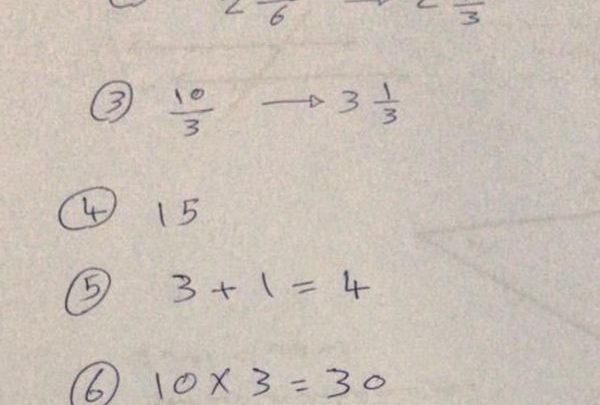 6 → 3
③ 10/3 → 3 1/3
④ 15
⑤ 3 + 1 = 4
⑥ 10 × 3 = 30